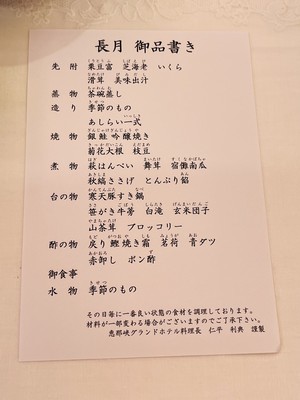 長月 御品書き
先附 栗豆富 芝海老 いくら
滑茸 美味出汁
蒸物 茶碗蒸し
造り 季節のもの
あしらい一式
焼物 銀鮭 吟醸焼き
菊花大根 枝豆
煮物 萩はんぺい 舞茸 宿儺南瓜
秋縞ささげ とんぶり餡
台の物 寒天豚すき鍋
笹がき牛蒡 白滝 玄米団子
山茶茸 ブロッコリー
酢の物 戻り鰹焼き霜 茗荷 青ダツ
赤卸し ポン酢
御食事
水物 季節のもの
その日毎に一番良い状態の食材を調理しております。
材料が一部変わる場合がございますのでご了承下さい。
恵那峡グランドホテル料理長 仁平 利典 謹製